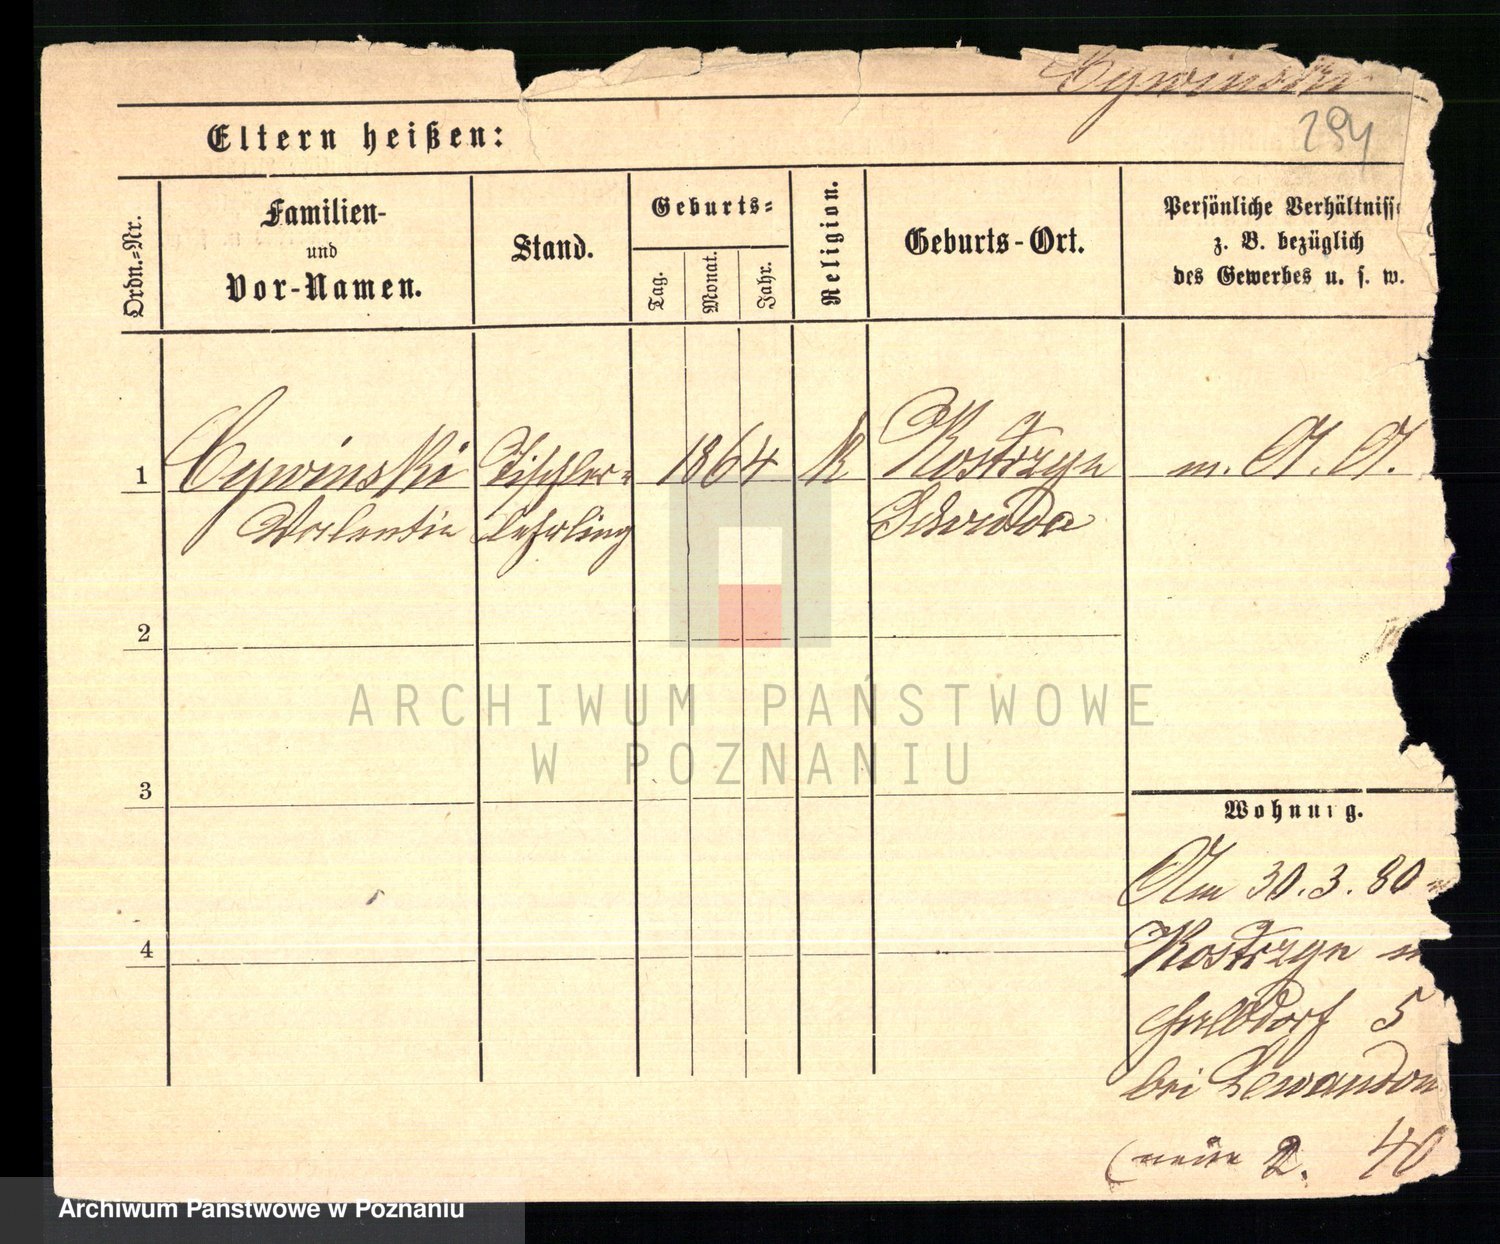 Cywinski
294
Eltern heißen:
Ordn.-Nr.
Familien-
und
Vor-Namen.
Stand.
Geburts-
Tag.
Monat.
Jahr.
Religion.
Geburts-Ort.
Persönliche Verhältnisse
z. B. bezüglich
des Gewerbes u. s. w.
1 Cywinski Tischler- 1864 K Kostrzyn m. A. A.
Valentin Lehrling Schroda
2
3
4
Wohnung.
Am 30.3.80
Kostrzyn
Halbdorf 5
bei Lewandow
2. 40
ARCHIWUM PAŃSTWOWE
W POZNANIU
Archiwum Państwowe w Poznaniu